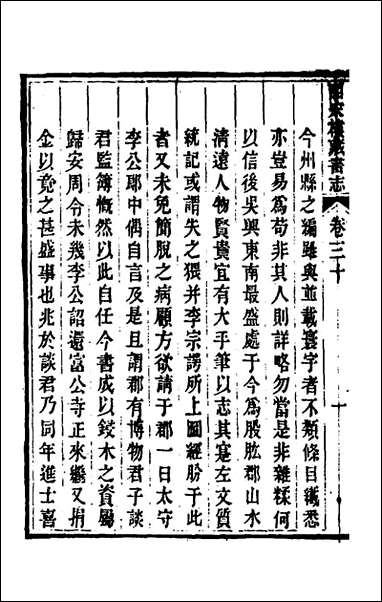 皕宋樓藏書志　卷三十
今州縣之編雖與並載寰宇者不類條目纖悉
亦豈易為苟非其人則詳略勿當是非雜糅何
以信後吳興東南最盛處于今為股肱郡山水
清遠人物賢貴宜有大手筆以志其寔左文質
統記或謂失之猥并李宗諤所上圖經胗于此
者又未免簡脫之病顧方欲請于郡一日太守
李公郎中偶自言及是且謂郡有博物君子談
君監簿慨然以此自任今書成以鋟木之資屬
歸安周令未幾李公詔還富公寺正來繼又捐
金以竟之甚盛事也兆於談君乃同年進士喜